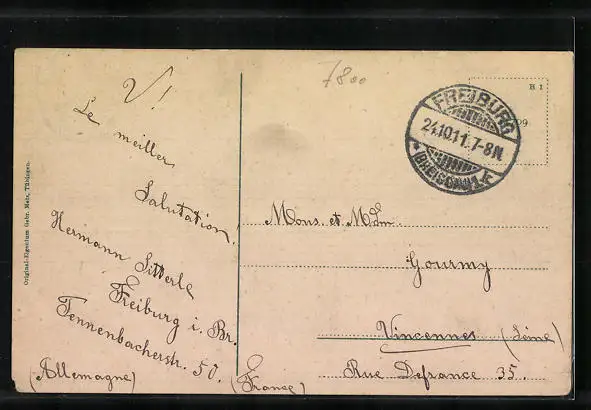 7800
V!
Le meiller
Salutation.
Hermann Sitterle
Freiburg i. Br.
Tennenbacherstr. 50.
(Allemagne)
Original-Eigentum Gebr. Metz, Tübingen.
H 1
09
FREIBURG
24.10.11.7-8N.
* (BREISGAU) 1.F
Mons. et Mdm.
Gourmy
Vincennes (Seine)
Rue Defrance 35.
(France)